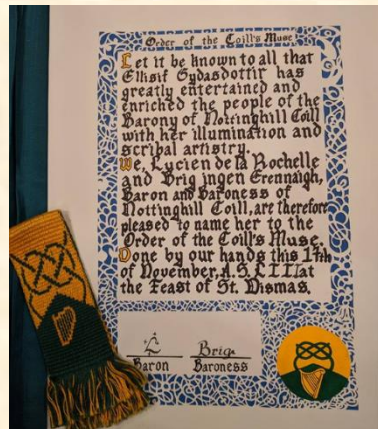 Order of the Coill's Muse
Let it be known to all that
Ellisif Gydasdottir has
greatly entertained and
enriched the people of the
Barony of Nottinghill Coill
with her illumination and
scribal artistry.
We, Lucien de la Rochelle
and Brig ingen Erennaigh,
Baron and Baroness of
Nottinghill Coill, are therefore
pleased to name her to the
Order of the Coill's Muse.
Done by our hands this 17th
of November, A.S. LIII at
the Feast of St. Dismas.
Brig
Baron Baroness